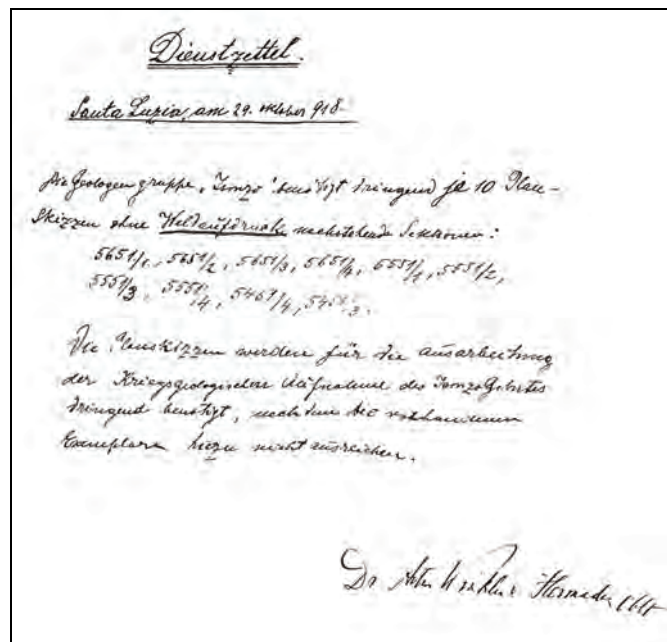 Dienstzettel.
Santa Luzia, am 29. oktober 918.
Die Geologengruppe „Isonzo" benötigt dringend je 10 Plan-
Skizzen ohne Waldaufdrucke nachstehender Sektionen:
5651/1, 5651/2, 5651/3, 5651/4, 5551/1, 5551/2,
5551/3, 5551/4, 5467/4,
Die Planskizzen werden für die ausarbeitung
der Kriegsgeologischen Aufnahme des Isonzo Gebietes
dringend benötigt, nachdem die vorhandenen
Exemplare hiezu nicht ausreichen.
Dr Artur Winkler Hermaden Oblt